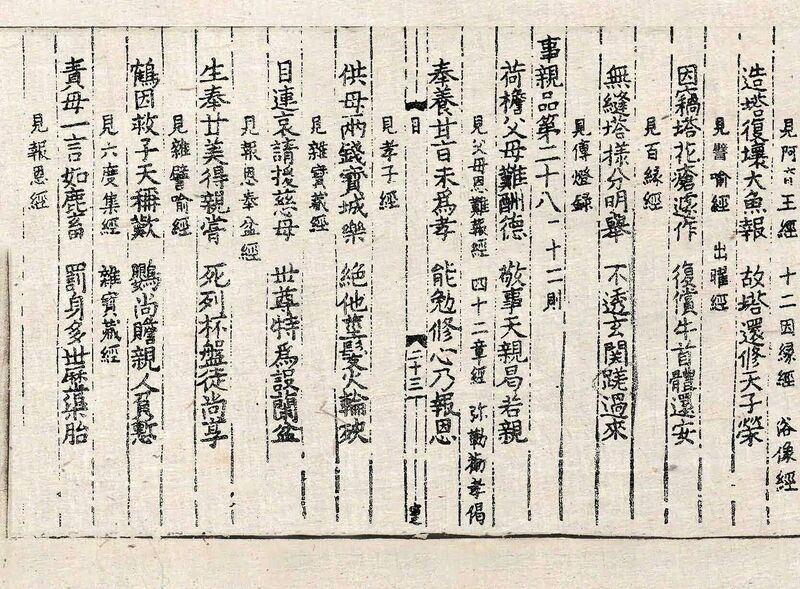 見阿育王經 十二因緣經 浴像經
造塔復壞大魚報 故塔還修天子榮
見譬喻經 出曜經
因竊塔花瘡遂作 復償牛首體還安
見百緣經
無縫塔樣分明舉 不透玄関蹉過來
見傳燈錄
事親品第二十八 二十二則
荷檐父母難酬德 敬事天親曷若親
見父母恩難報經 四十二章經 弥勒勸孝偈
奉養甘旨未為孝 能勉修心乃報恩
目 二十三
見孝子經
供母兩錢寶城樂 絕他莖髮火輪殃
見雜寶藏經
目連哀請援慈母 世尊特為設蘭盆
見報恩奉盆經
生奉甘美得親嘗 死列杯盤徒尚享
見雜譬喻經
鶴因救子天稱歎 鸚尚贍親人負慙
見六度集經 雜寶藏經
責母一言如鹿畜 罰身多世歷藥胎
見報恩經